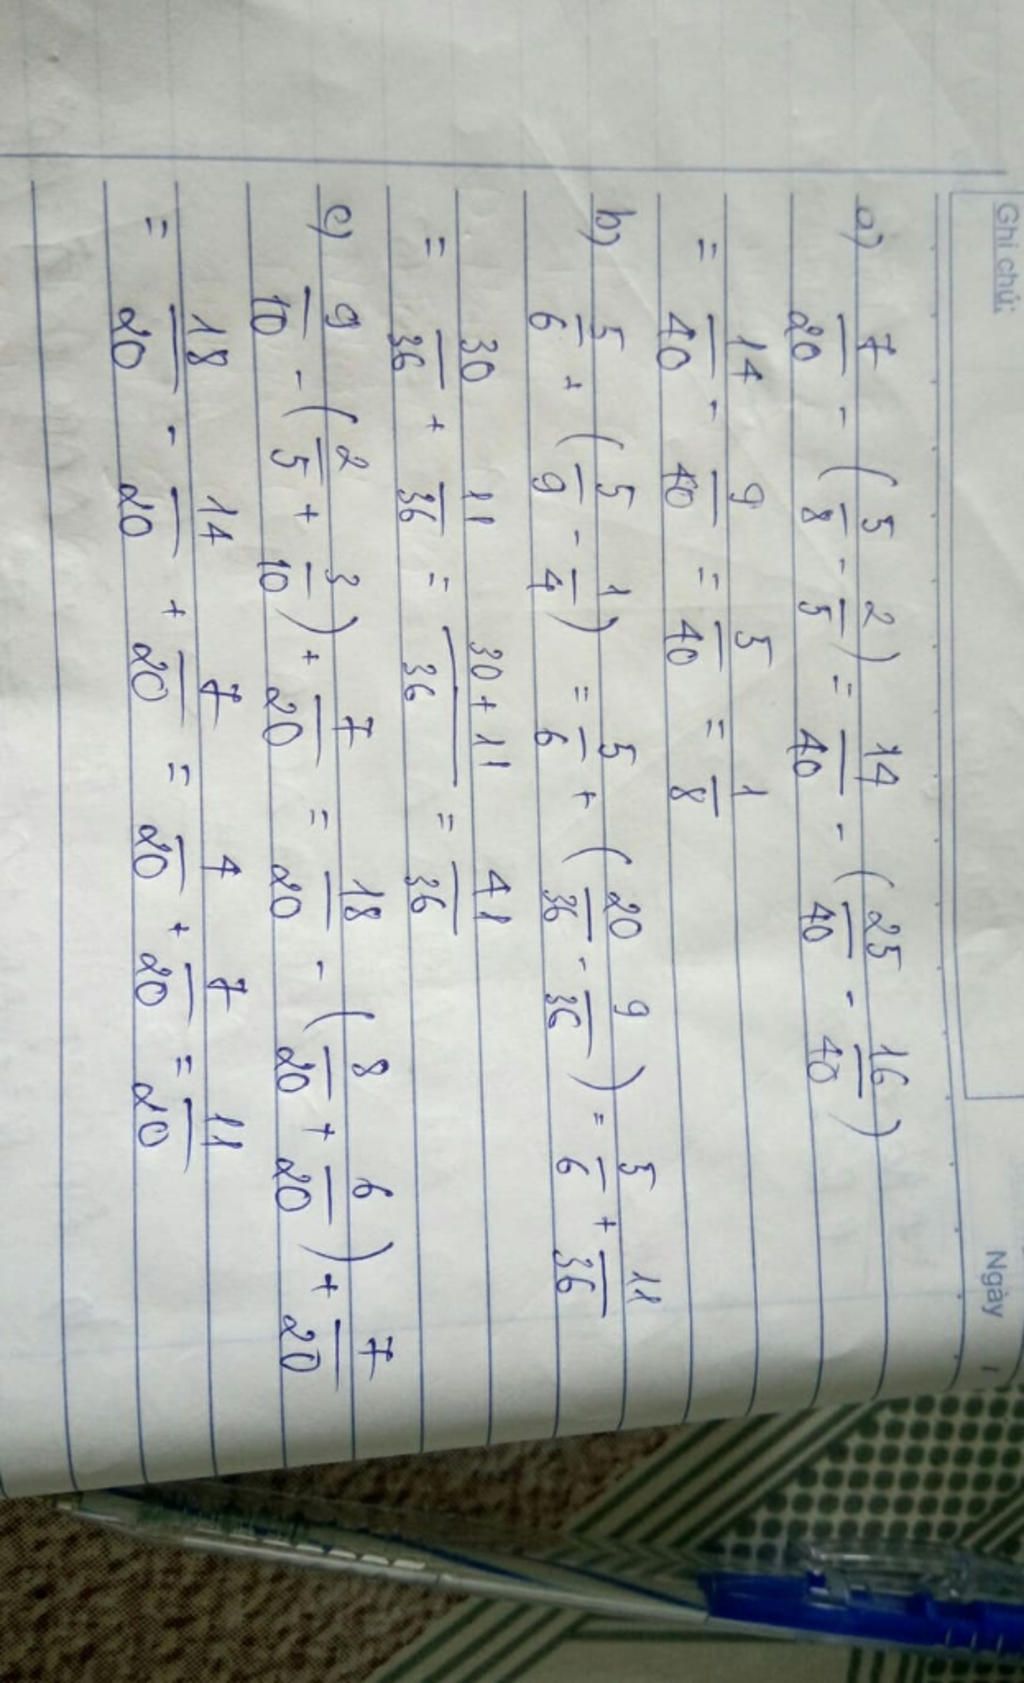 Ghi chú: Ngày
a) 7/20 - (5/8 - 2/5) = 14/40 - (25/40 - 16/40)
= 14/40 - 9/40 = 5/40 = 1/8
b) 5/6 + (5/9 - 1/4) = 5/6 + (20/36 - 9/36) = 5/6 + 11/36
= 30/36 + 11/36 = 30+11/36 = 41/36
c) 9/10 - (2/5 + 3/10) + 7/20 = 18/20 - (8/20 + 6/20) + 7/20
= 18/20 - 14/20 + 7/20 = 4/20 + 7/20 = 11/20